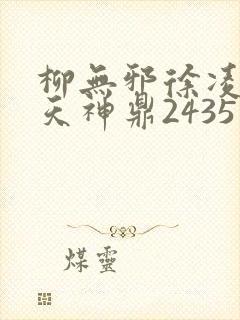 柳無邪徐凌
天神鼎2435
煤靈